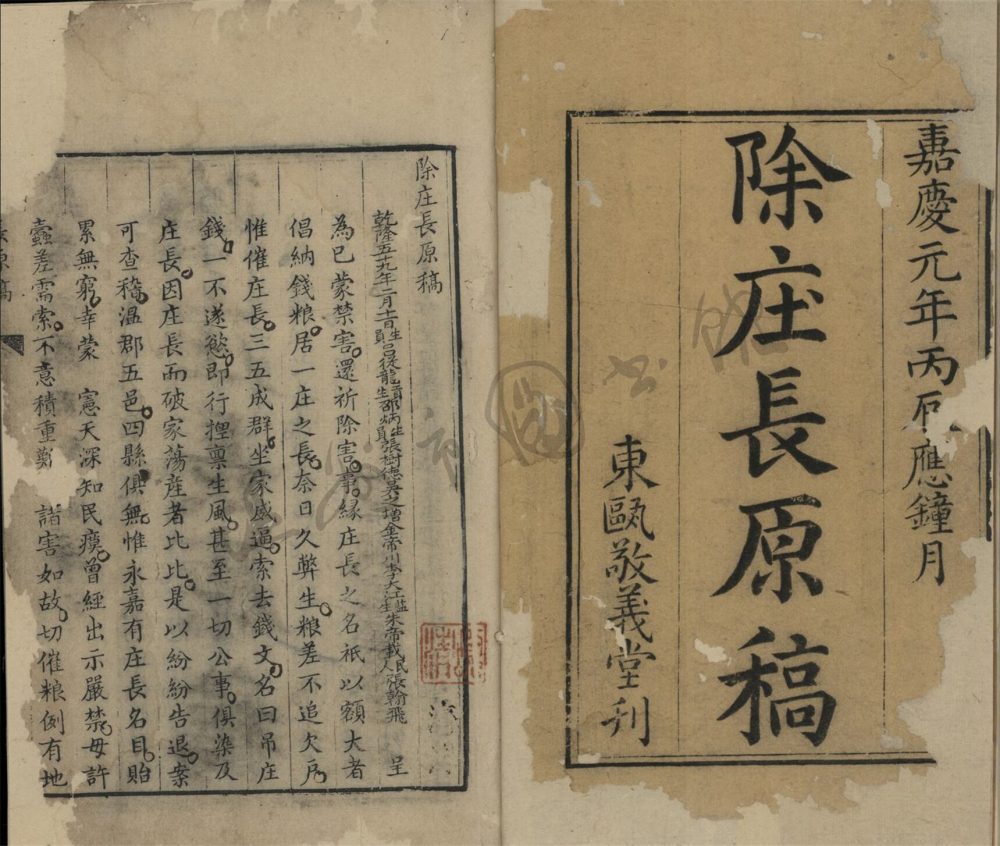 嘉慶元年丙辰應鐘月
除庄長原稿
東甌敬義堂刊
除庄長原稿
乾隆五十九年 月 日 生員 從龍 邵炳 張樹德 金帝川李大江監生朱帝載民人張翰飛 呈
為已蒙禁害還祈除害事緣庄長之名祇以額大者
倡納錢粮居一庄之長奈日久弊生粮差不追欠戶
惟催庄長三五成群坐家威逼索去錢文名曰吊庄
錢一不遂慾即行捏禀生風甚至一切公事俱染及
庄長因庄長而破家蕩産者比比是以紛紛告退案
可查稽温郡五邑四縣俱無惟永嘉有庄長名目貽
累無窮幸蒙 憲天深知民瘼曾經出示嚴禁毋許
蠹差需索不意積重難 諸害如故切催粮例有地
原稿